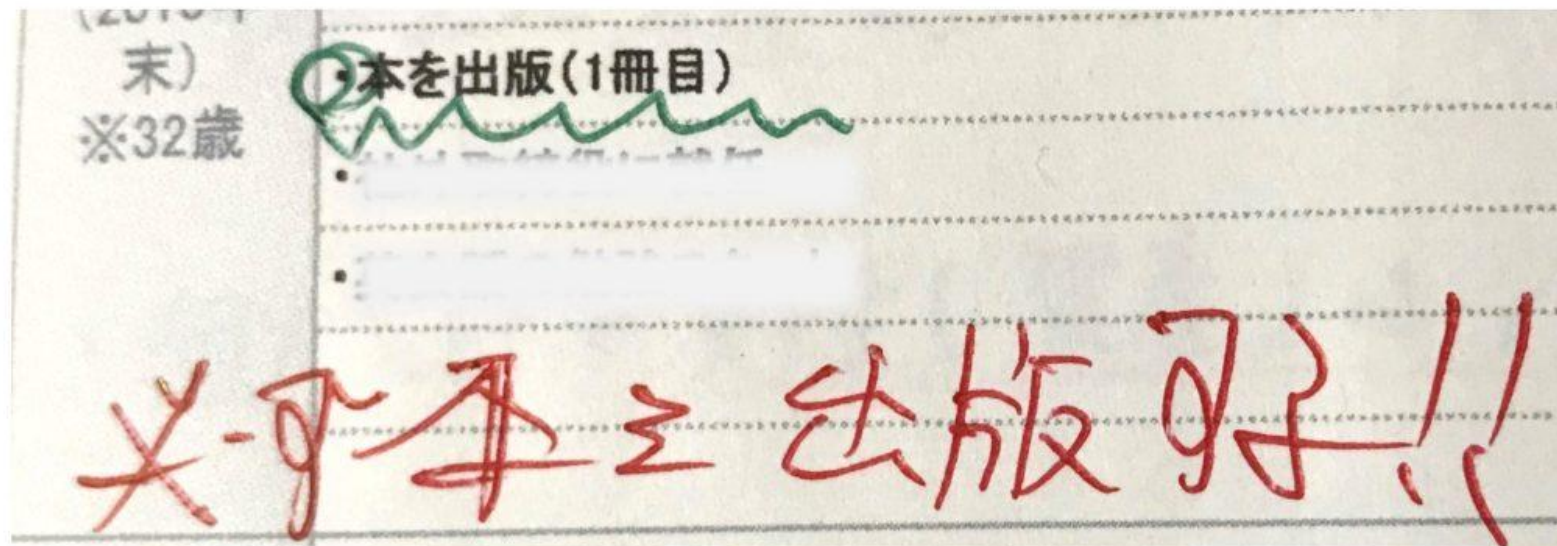 末)
※32歳
・本を出版(1冊目)
必ず本を出版する!!